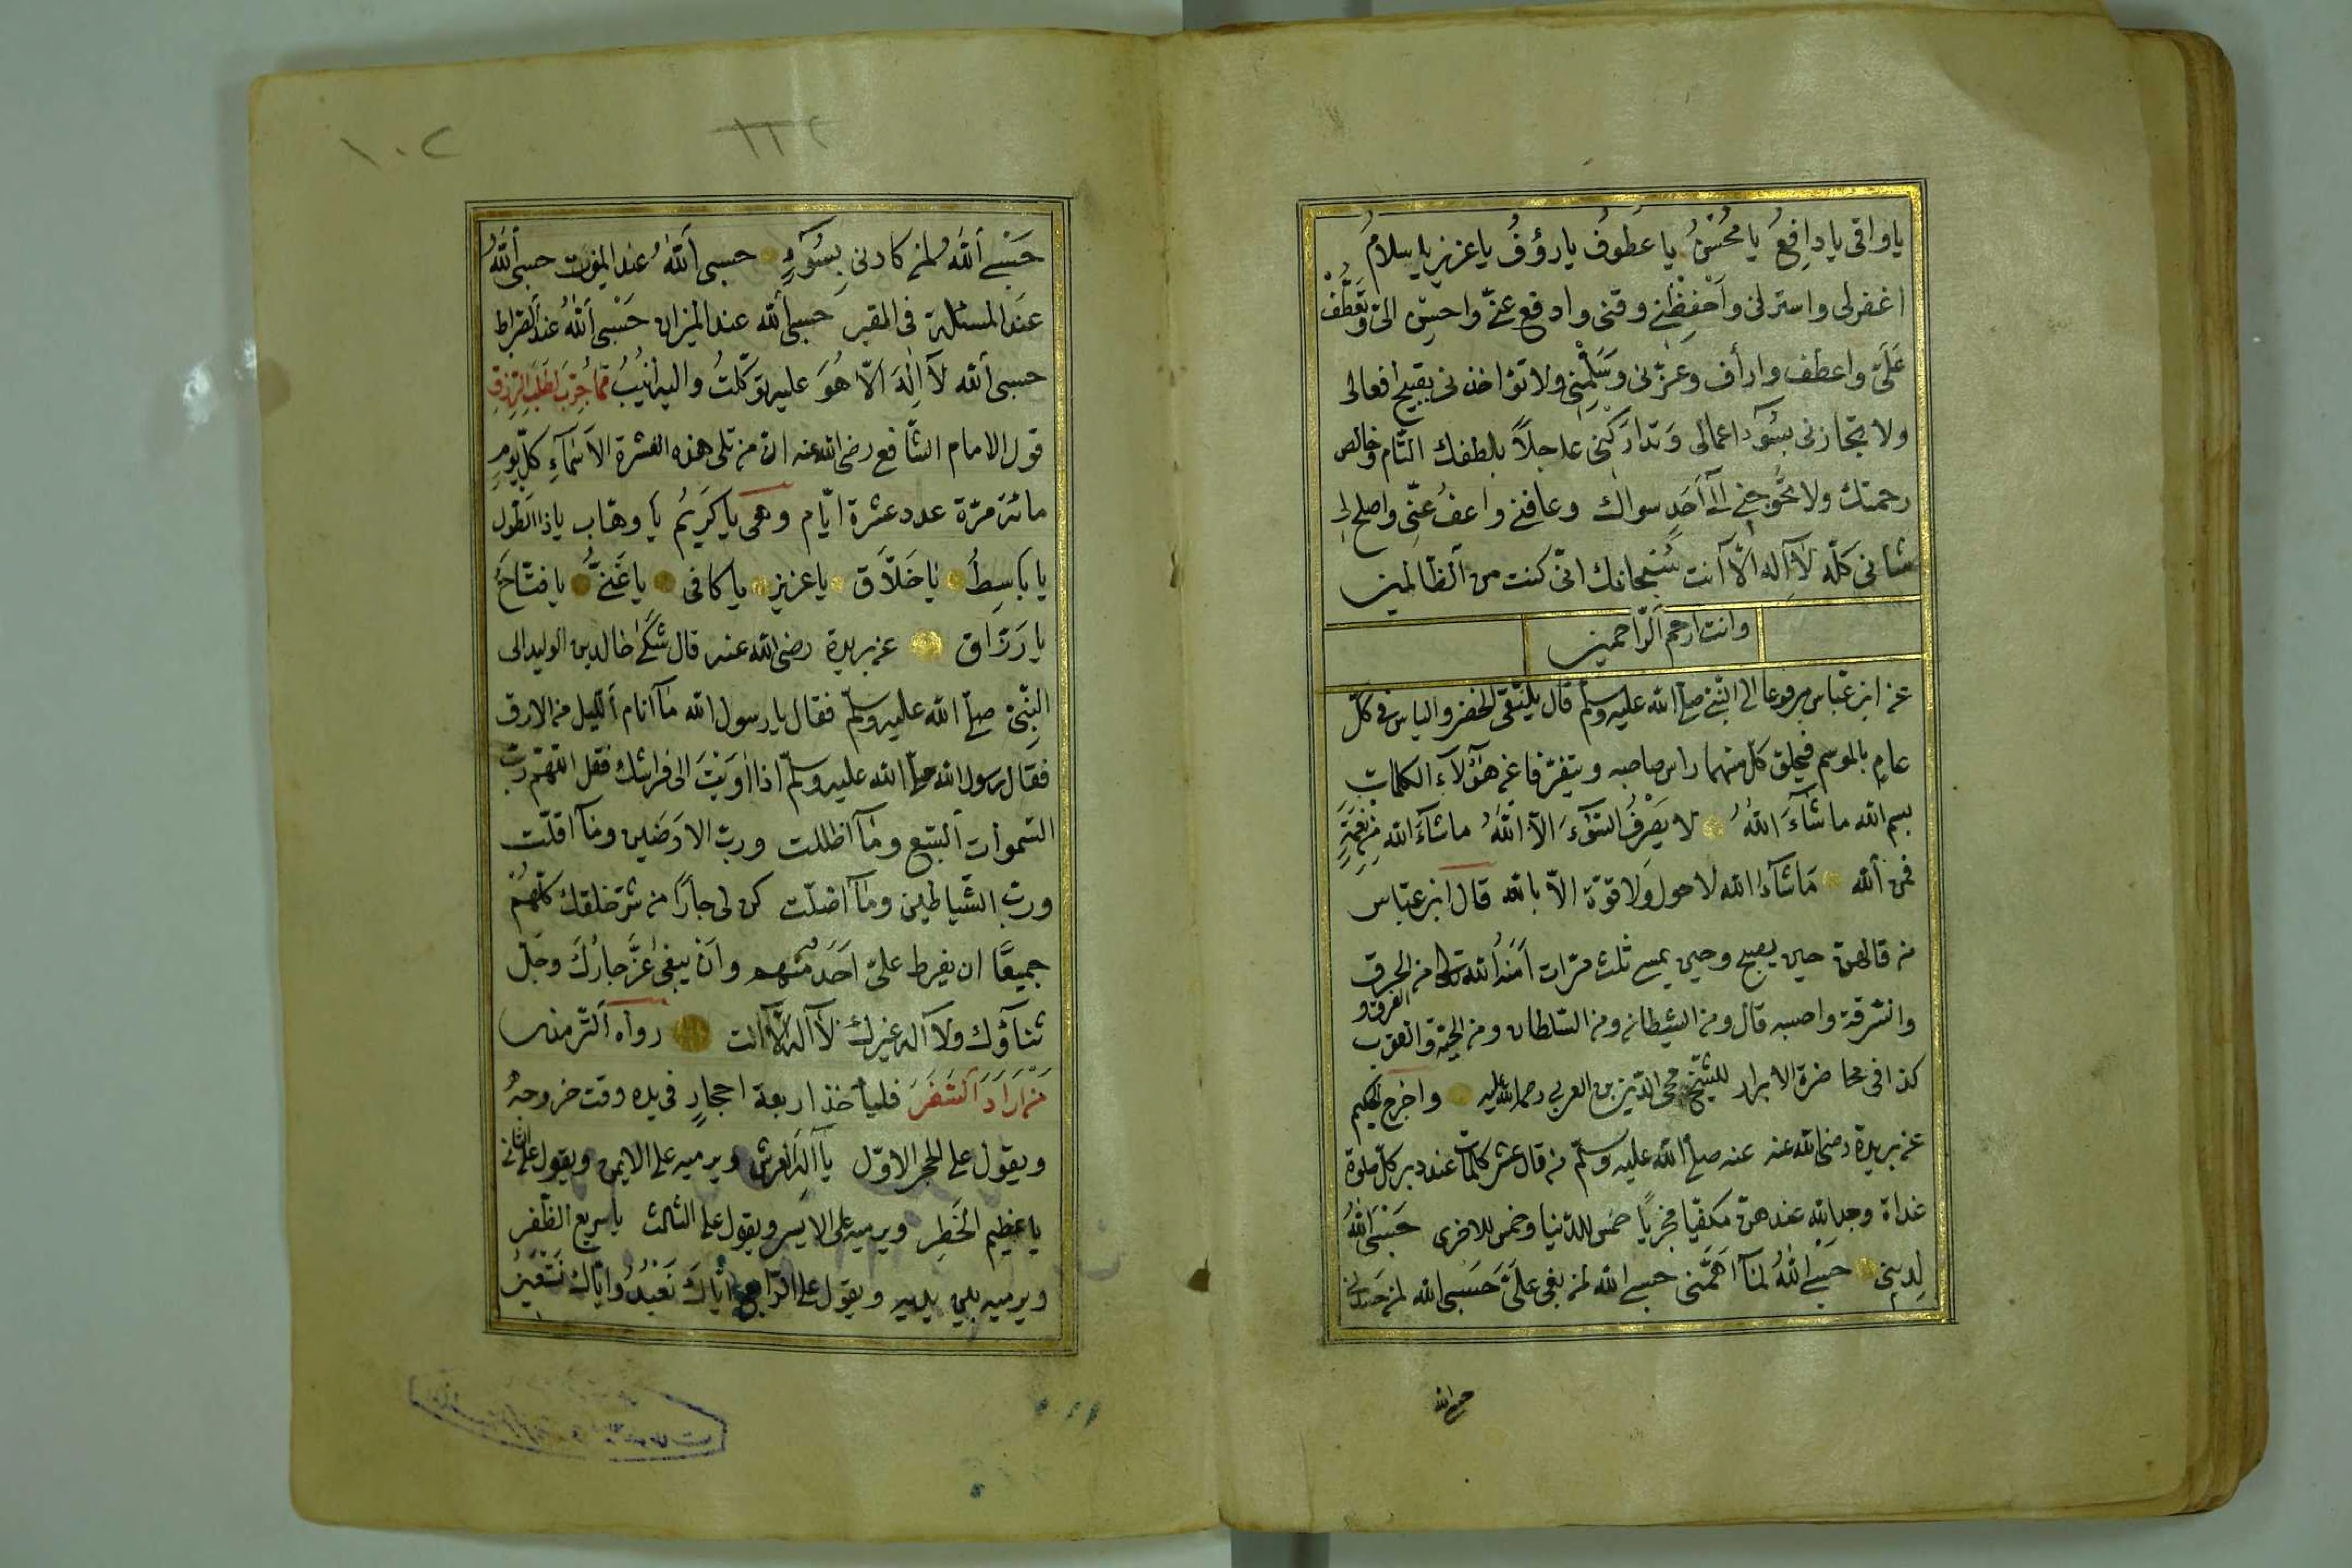 يا واقى يا دافِعُ يا مُحْسِنُ يا عَطُوفُ يا رؤفُ يا عزيز يا سلامُ
اغفرلى واسترلى وَاَحْفِظْنى وقنى وادفع عنّى واحسن الىّ وتَعَطَّفْ
عَلَىَّ واعطف وارأف وَعَزّنى وَسَلِّمْنِى ولا تؤاخذنى بقبيح افعالى
ولا تجازنى بسُوۤء اعمالى وَتدارَكْنِى عاجلاً بلطفك التّام وخالص
رحمتك ولا تحُّوجنى الىٰ اَحَدٍ سواك وعافنى واعفُ عنّى واصلح لى
شانى كلّه لآ اِله الّآ انت سُبْحانك انّى كنت من الظّالمين
وانت ارحم الرّاحمين
عن ابن عبّاس مرفوعا الى النّبى صلّى الله عليه وسلّم قال يلتقى الخضر والياس فى كلّ
عامٍ بالموسم فيحلق كلّ منهما راس صاحبه ويتفرّقا عن هۤؤلآءِ الكلمات
بسم الله ما شآءَ اللهُ لا يَصْرِفُ السّوۤءَ الّا اللهُ ما شآءَ الله مِن نِعْمَةٍ
فمن الله مَا شآء الله لا حول وَلا قوّة الّا بالله قال ابن عبّاس
من قالهنّ حين يصبح وحين يمسى ثلث مرّات اَمَنَهُ الله تعالى من الحرق
والغرق و
والسّرقة واحسبه قال ومن الشيطان ومن السّلطان ومن الحيّة والعقرب
كذا فى محاضرة الابرار للشيخ محى الدّين بن العربى رحمة الله عليه واخرج الحكيم
عن بريدة رضى الله عنه عنه صلّى الله عليه وسلّم من قال عشر كلمات عند دبر كلّ صلوة
غداة وجد الله عندهنّ مكفيا مجزيّاً خمس للدّنيا وخمس للاخرى حَسْبِىَ اللهُ
لِدينى حَسْبِىَ اللهُ لمآ اَهَمَّنى حسبى الله لمن بغى علَىَّ حَسْبى الله لمن حَسَدنى
حسبى الله
١٠٢
١١٢
حَسْبِىَ اللهُ لمن كادنى بِسُوۤءٍ حسبى اللهُ عند الموت حسبى اللهُ
عندَ المسئلة فى القبر حَسبى الله عند الميزان حَسْبى اللهُ عند الصّراط
حسبى الله لآ اِلٰهَ الّا هُوَ عليه توكّلتُ واليه اُنيبُ ممّا جُرِّبَ لطَلَبِ الرّزقِ
قول الامام الشّافعى رضى الله عنه انّ من تلى هذه العشرة الاَسْمآءِ كلّ يومٍ
مائة مرّة عدد عشرة ايّام وهى يا كَرِيْمُ يا وهّاب يا ذا الطّول
يا باسِطُ يا خَلاَّق يا عزيز يا كافى يا غَنىُّ يا فتّاحُ
يا رَزّاق عن بريدة رضى الله عنه قال شَكَىٰ خالد بن الوليد الى
النّبِىّ صلّى الله عليه وسلّم فقال يا رسول الله مآ انام اللّيل من الارق
فقال رسول الله صلّى الله عليه وسلّم اذا اوَيْتَ الى فراشك فقل اللّهمّ ربّ
السّموات السّبع ومآ اظلّت وربّ الارَضين ومآ اقلّت
وربّ الشّياطين ومآ اضلّت كن لى جارًا من شرّ خلقك كلّهُمْ
جميعًا ان يفرط علىّ اَحَدٌ منهم واَنْ يبغى عَزَّ جارُكَ وجلّ
ثنآؤك ولا آله غيرك لآ آله الّآ انت رواه الترمذى
مَنْ اَرَادَ السَّفَرَ فليأخذ اربعة احجارٍ فى يده وقت خروجهُ
ويقول على الحجر الاوّل يا آلهَ العرش ويرميه على الايمن ويقول على الثّانى
يا عظيم الخَطرِ ويرميه على الايسر ويقول على الثالث يا سريع الظّفر
ويرميه بين يديه ويقول على الرّابع ايّاكَ نَعْبُدُ وايّاك نَسْتَعينُ